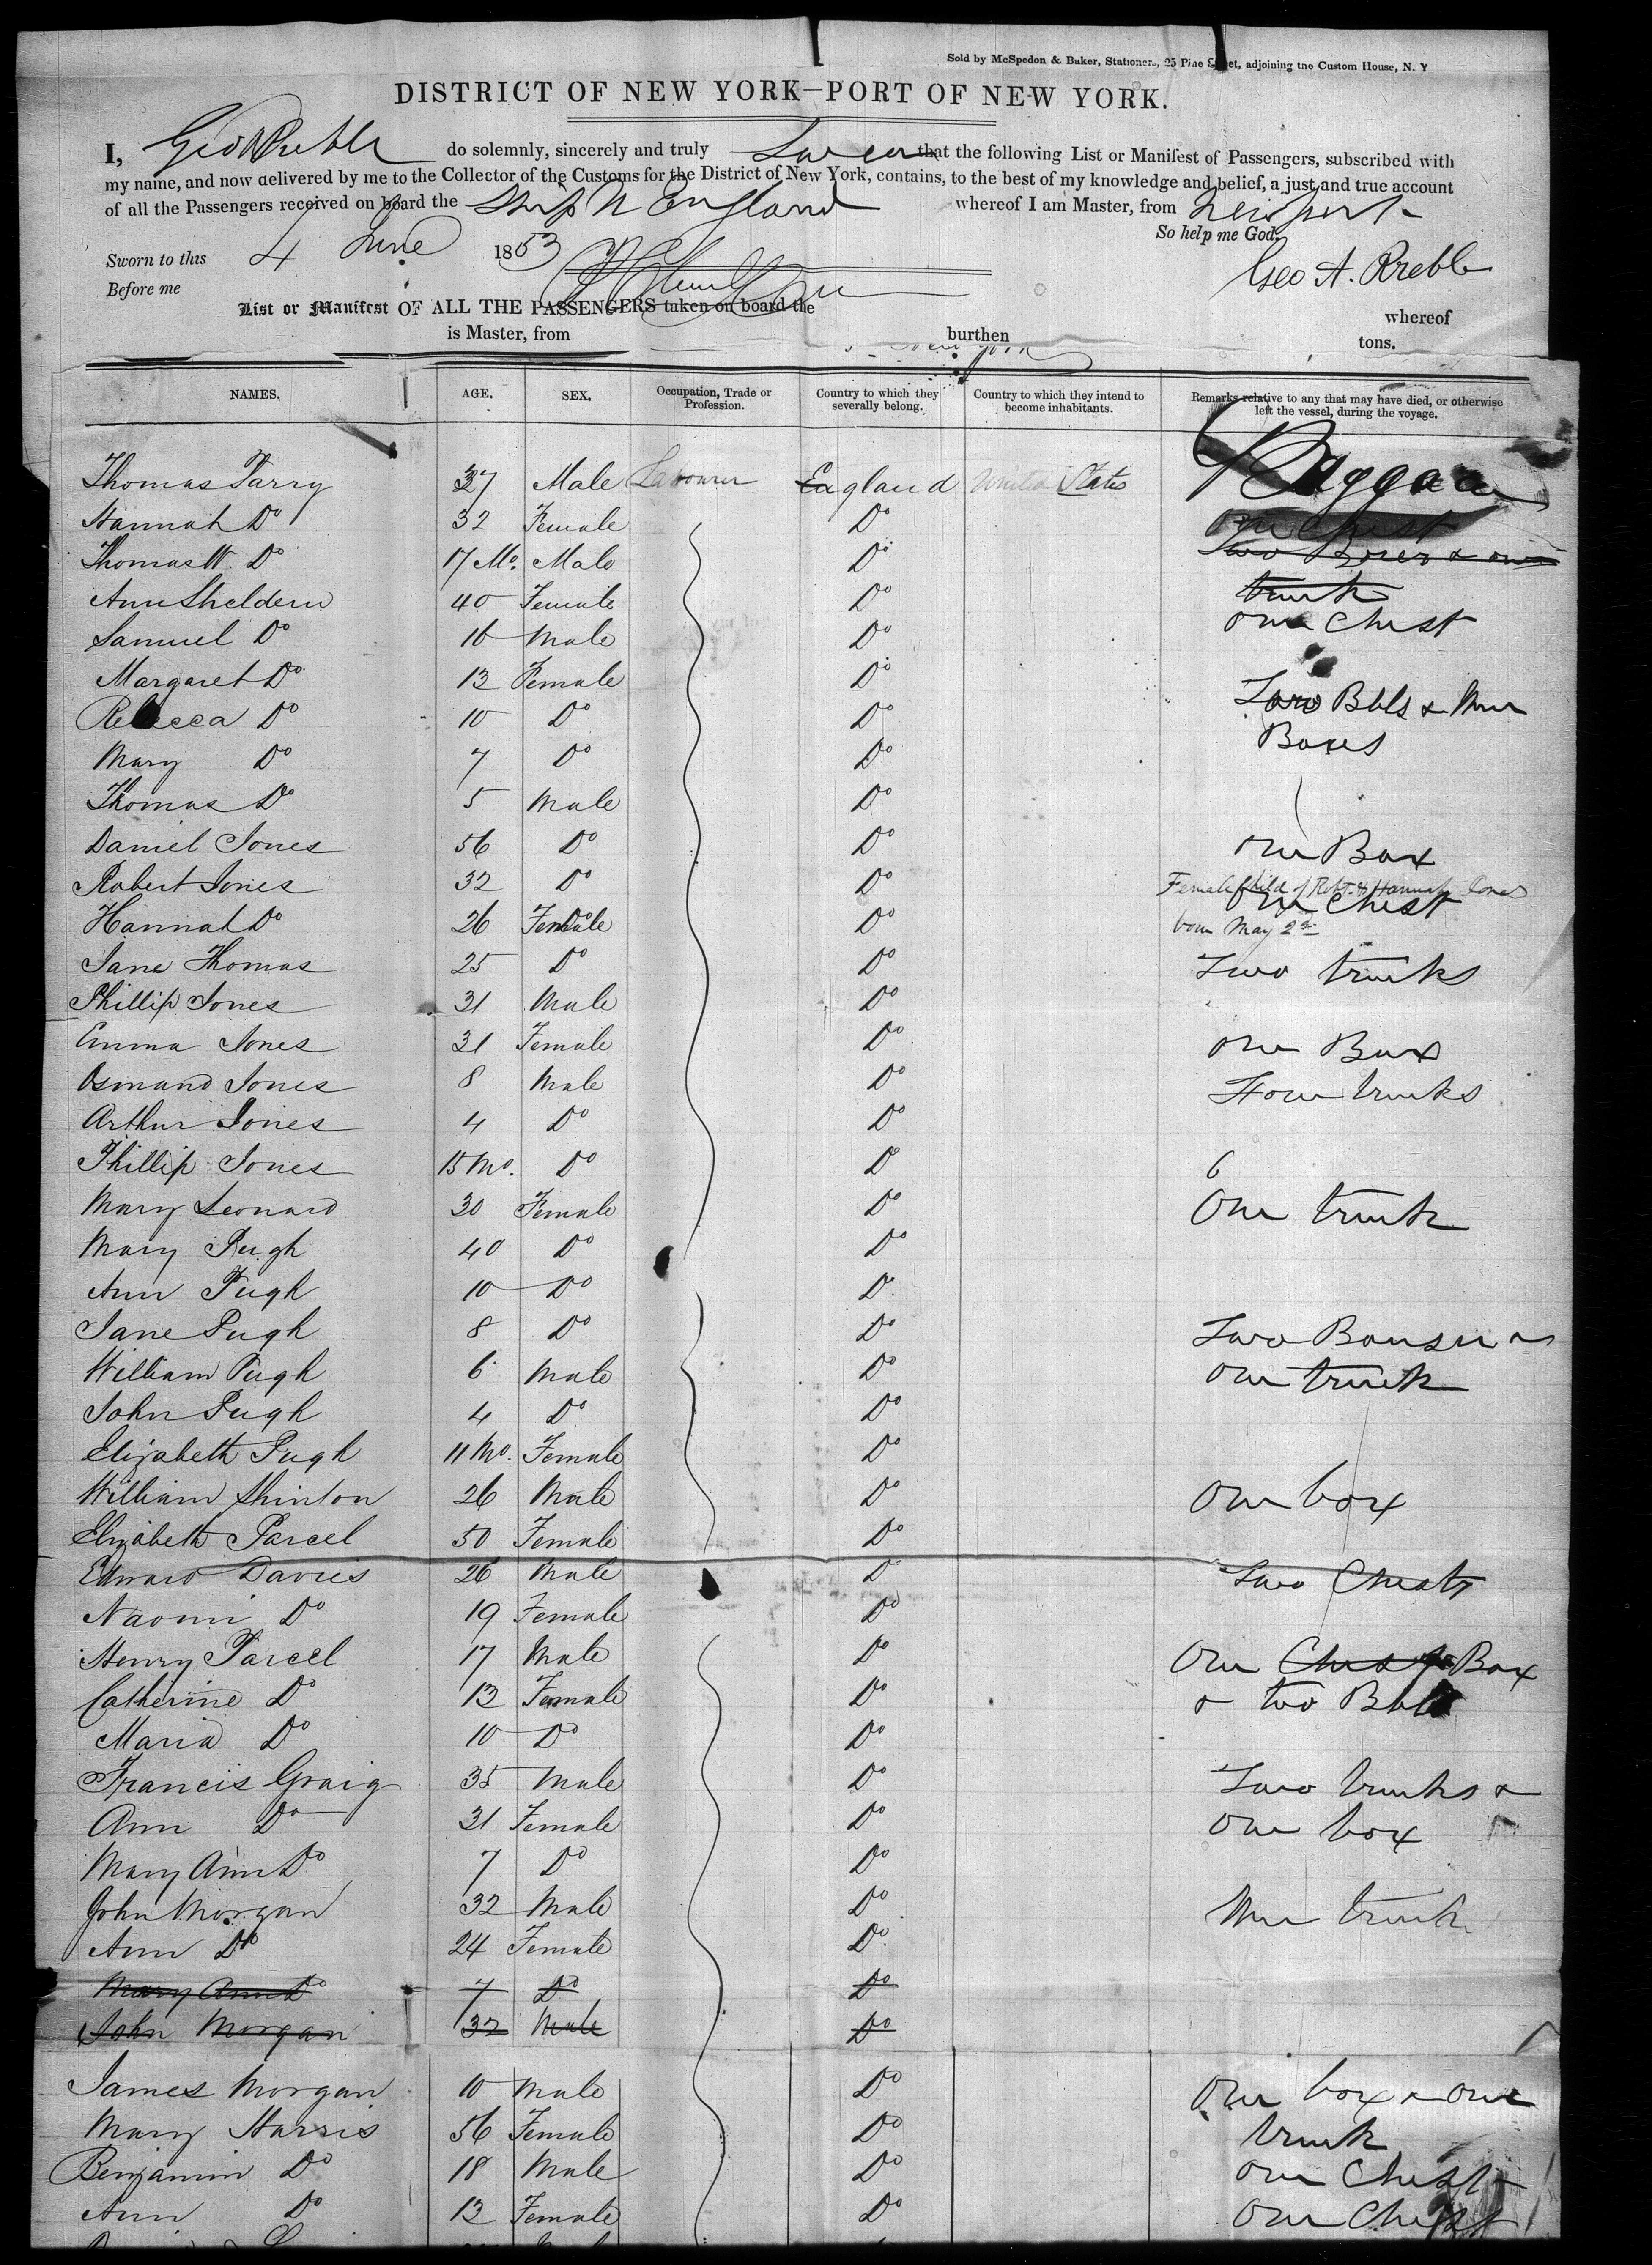 Sold by McSpedon & Baker, Stationers, 25 Pine Street, adjoining the Custom House, N. Y
DISTRICT OF NEW YORK—PORT OF NEW YORK.
I, Geo A Preble do solemnly, sincerely and truly Swear that the following List or Manifest of Passengers, subscribed with
my name, and now delivered by me to the Collector of the Customs for the District of New York, contains, to the best of my knowledge and belief, a just and true account
of all the Passengers received on board the Ship N England whereof I am Master, from Newport
So help me God.
Sworn to this 4 June 1853
Geo A. Preble
Before me
List or Manifest OF ALL THE PASSENGERS taken on board the whereof
is Master, from burthen tons.
NAMES. AGE. SEX. Occupation, Trade or Profession. Country to which they severally belong. Country to which they intend to become inhabitants. Remarks relative to any that may have died, or otherwise left the vessel, during the voyage.
Thomas Parry 37 Male Labourer England United States Baggage
Hannah Do 32 Female Do One Chest
Thomas W. Do 17 Mo. Male Do Two Boxes & one
Ann Sheldern 40 Female Do trunk
Samuel Do 16 Male Do One Chest
Margaret Do 13 Female Do
Rebecca Do 10 Do Do Two Bbls &
Mary Do 7 Do Do Boxes
Thomas Do 5 Male Do
Daniel Jones 56 Do Do One Box
Robert Jones 32 Do Do Female Child of Robt. & Hannah Jones
One Chest
Hannah Do 26 Female Do born May 2d
Jane Thomas 25 Do Do Two trunks
Phillip Jones 31 Male Do
Emma Jones 31 Female Do One Box
Osmand Jones 8 Male Do Four trunks
Arthur Jones 4 Do Do
Phillip Jones 15 Mo. Do Do 6
Mary Leonard 30 Female Do One trunk
Mary Pugh 40 Do Do
Ann Pugh 10 Do Do
Jane Pugh 8 Do Do Two
William Pugh 6 Male Do One trunk
John Pugh 4 Do Do
Elizabeth Pugh 11 Mo. Female Do
William Shinton 26 Male Do One box
Elizabeth Parcel 50 Female Do
Edward Davies 26 Male Do Two Chests
Naomi Do 19 Female Do
Henry Parcel 17 Male Do One Chest Box
Catherine Do 13 Female Do & two Bbls
Maria Do 10 Do Do
Francis Graig 35 Male Do Two trunks &
Ann Do 31 Female Do One box
Mary Ann Do 7 Do Do
John Morgan 32 Male Do trunk
Ann Do 24 Female Do
Mary Ann Do 7 Do Do
John Morgan 32 Male Do
James Morgan 10 Male Do One box & one
Mary Harris 56 Female Do trunk
Benjamin Do 18 Male Do One Chest
Ann Do 13 Female Do One Chest